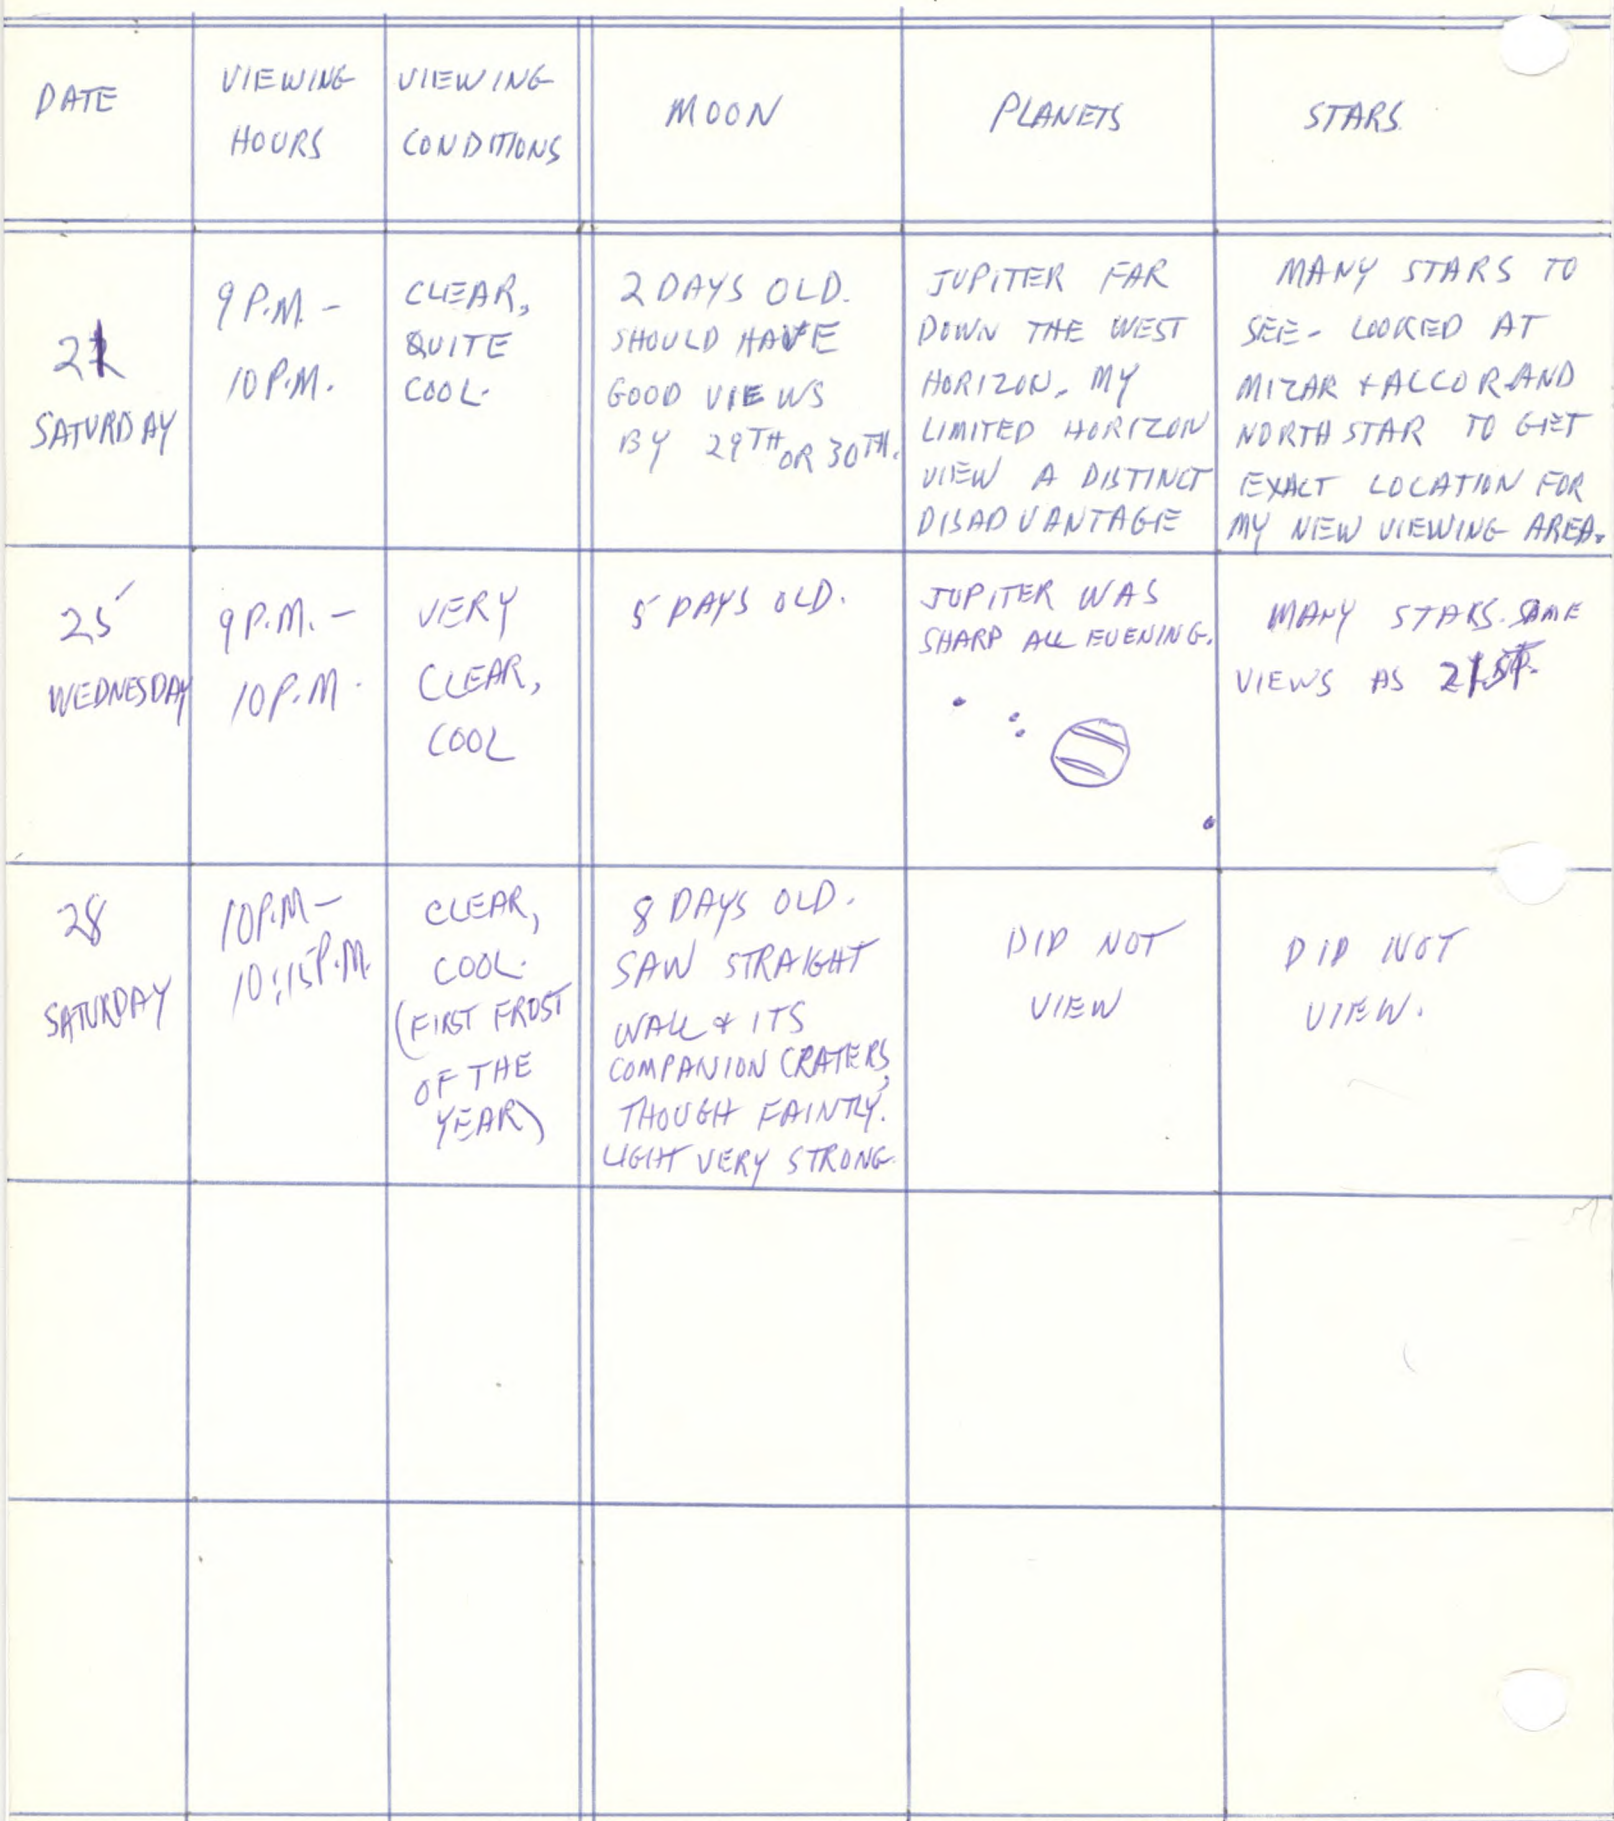 DATE
VIEWING
HOURS
VIEWING
CONDITIONS
MOON
PLANETS
STARS.
21
SATURDAY
9 P.M. -
10 P.M.
CLEAR,
QUITE
COOL.
2 DAYS OLD.
SHOULD HAVE
GOOD VIEWS
BY 29TH OR 30TH.
JUPITER FAR
DOWN THE WEST
HORIZON. MY
LIMITED HORIZON
VIEW A DISTINCT
DISADVANTAGE
MANY STARS TO
SEE - LOOKED AT
MIZAR + ALCOR AND
NORTH STAR TO GET
EXACT LOCATION FOR
MY NEW VIEWING AREA.
25
WEDNESDAY
9 P.M. -
10 P.M.
VERY
CLEAR,
COOL
5 DAYS OLD.
JUPITER WAS
SHARP ALL EVENING.
MANY STARS. SAME
VIEWS AS 21ST.
28
SATURDAY
10 P.M -
10:15 P.M.
CLEAR,
COOL.
(FIRST FROST
OF THE
YEAR)
8 DAYS OLD.
SAW STRAIGHT
WALL & ITS
COMPANION CRATERS,
THOUGH FAINTLY.
LIGHT VERY STRONG.
DID NOT
VIEW
DID NOT
VIEW.